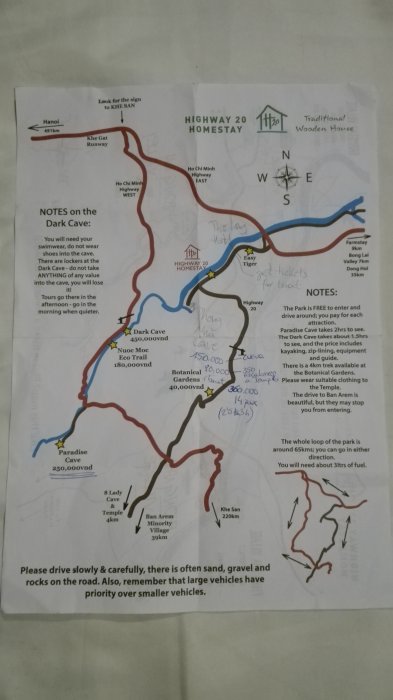 Look for the sign
to KHE SAN
HIGHWAY 20
HOMESTAY
H20
Traditional
Wooden House
Hanoi
491km
Khe Gat
Runway
N
W E
S
Ho Chi Minh
Highway
EAST
Ho Chi Minh
Highway
WEST
NOTES on the
Dark Cave:
You will need your
swimwear, do not wear
shoes into the cave.
There are lockers at the
Dark Cave - do not take
ANYTHING of any value
into the cave, you will lose
it!
Tours go there in the
afternoon - go in the
morning when quieter.
HIGHWAY 20
HOMESTAY
Easy
Tiger
get tickets
for boat
Farmstay
9km
Bong Lai
Valley 7km
Dong Hoi
35km
Highway
20
NOTES:
The Park is FREE to enter and
drive around; you pay for each
attraction.
Paradise Cave takes 2hrs to see.
The Dark Cave takes about 1.5hrs
to see, and the price includes
kayaking, zip-lining, equipment
and guide.
There is a 4km trek available at
the Botanical Gardens.
Please wear suitable clothing to
the Temple.
The drive to Ban Arem is
beautiful, but they may stop
you from entering.
Dark Cave
450,000vnd
Nuoc Moc
Eco Trail
180,000vnd
Cave
150.000
Botanical
Gardens
40,000vnd
360.000
14 pax
Paradise
Cave
250,000vnd
8 Lady
Cave
&
Temple
4km
Ban Arem
Minority
Village
39km
Khe San
220km
The whole loop of the park is
around 65kms; you can go in either
direction.
You will need about 3ltrs of fuel.
Please drive slowly & carefully, there is often sand, gravel and
rocks on the road. Also, remember that large vehicles have
priority over smaller vehicles.